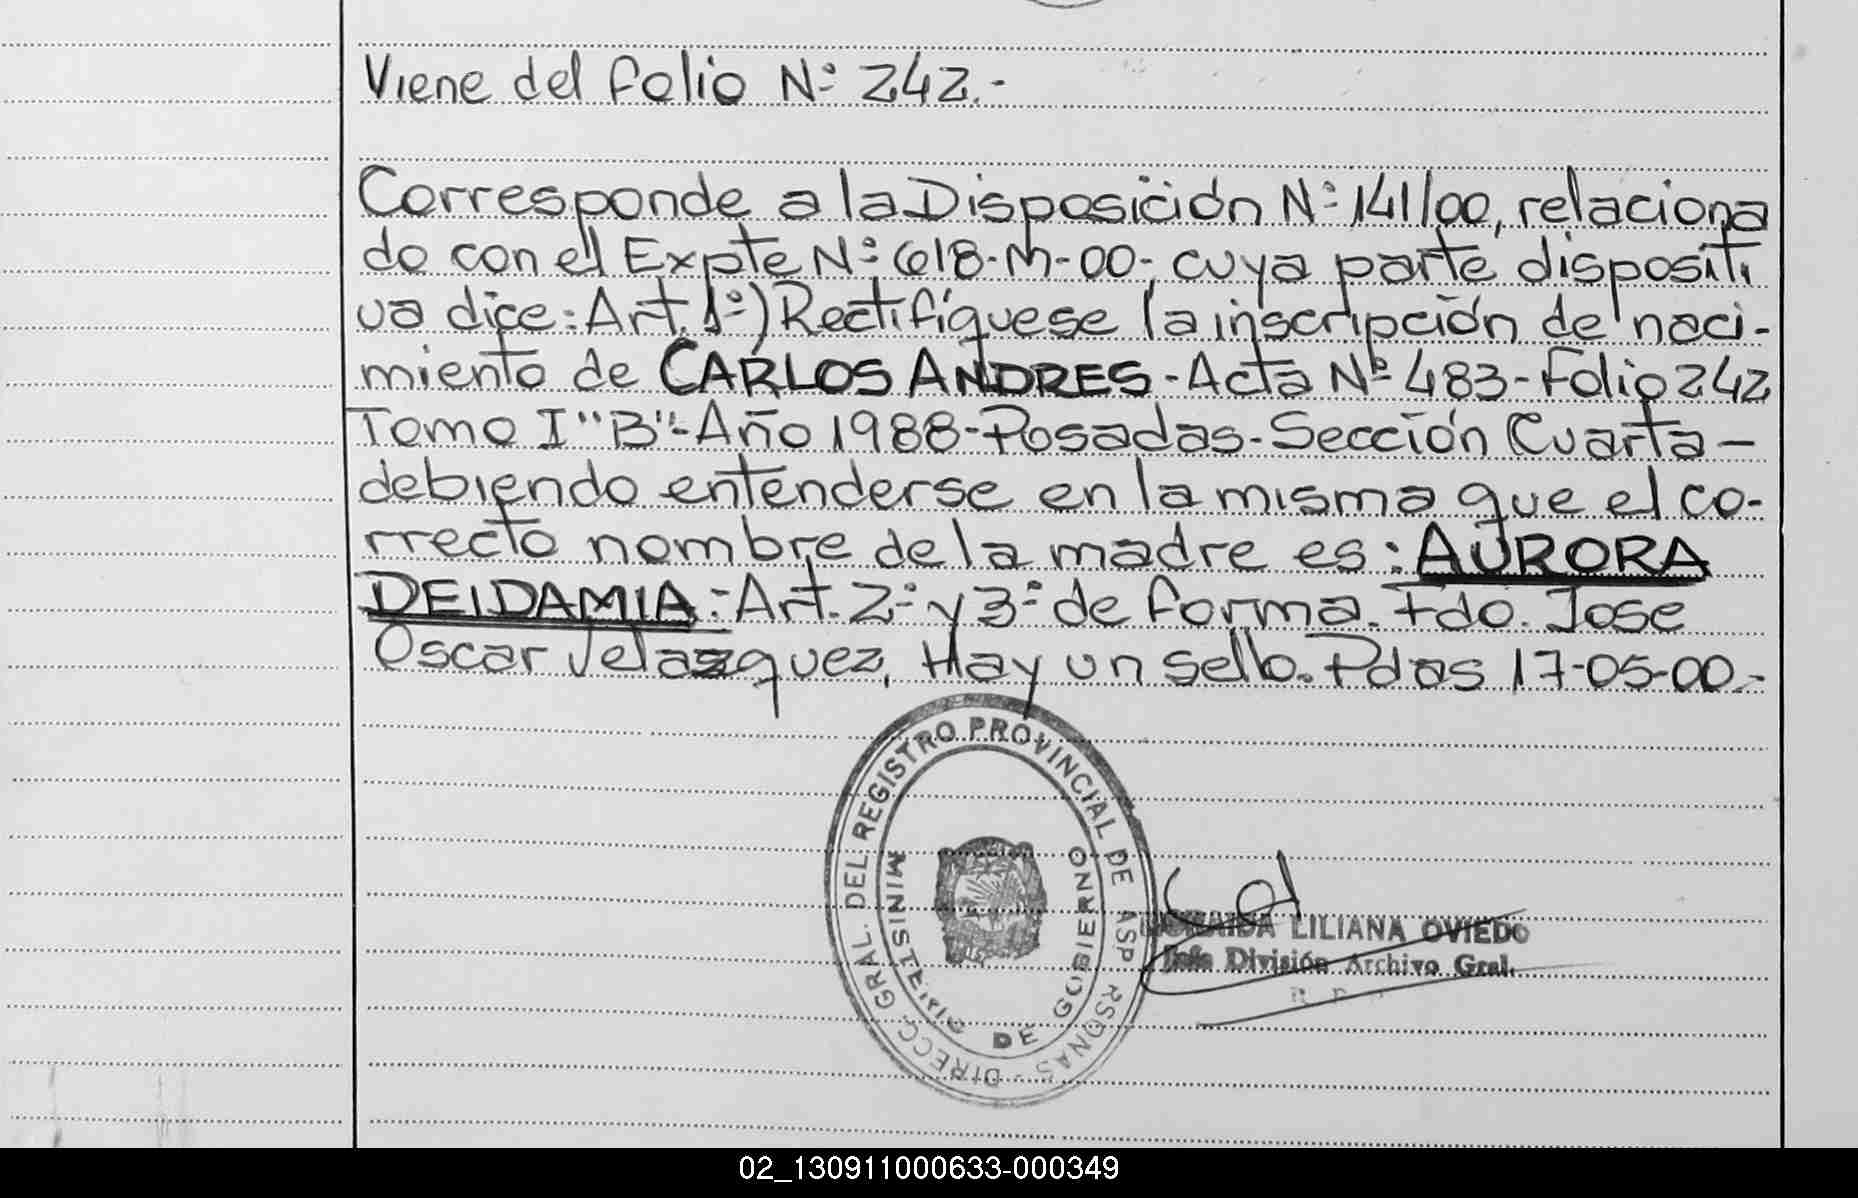 Viene del folio Nº 242.-
Corresponde a la Disposición Nº 141/00, relaciona
do con el Expte Nº 618-M-00-, cuya parte dispositi
va dice: Art. 1º) Rectifíquese la inscripción de naci-
miento de CARLOS ANDRES - Acta Nº 483 - Folio 242
Tomo I "B"- Año 1988 - Posadas - Sección Cuarta -
debiendo entenderse en la misma que el co-
rrecto nombre de la madre es: AURORA
DEIDAMIA: Art. 2º y 3º de forma. Fdo. Jose
Oscar Velazquez, Hay un sello. Pdas 17-05-00.-
DIRECC. GRAL. DEL REGISTRO PROVINCIAL DE
MINISTERIO DE GOBIERNO
LILIANA OVIEDO
Jefe División Archivo Gral.
02_130911000633-000349